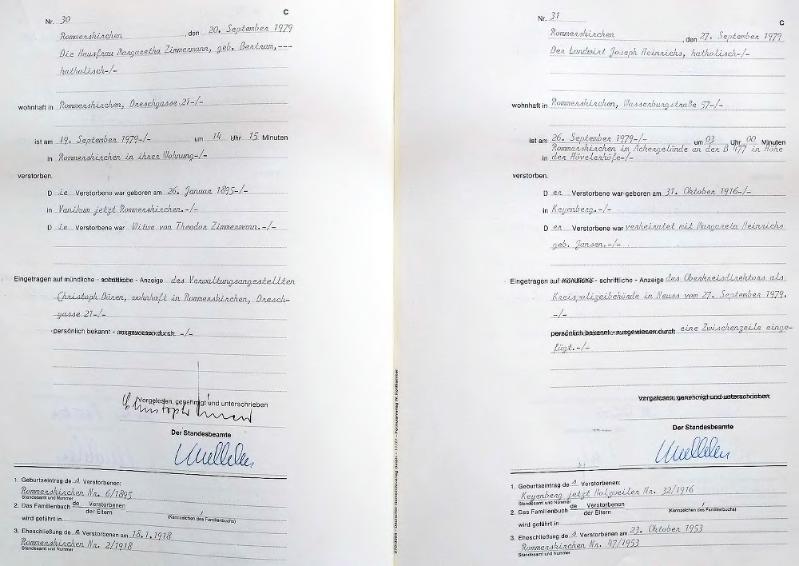 C
Nr. 30
Rommerskirchen, den 20. September 1979
Die Hausfrau Margaretha Zimmermann, geb. Bertrum,---
katholisch-/-
wohnhaft in Rommerskirchen, Dreschgasse 21-/-
ist am 19. September 1979-/- um 14 Uhr 15 Minuten
in Rommerskirchen in ihrer Wohnung-/-
verstorben.
Die Verstorbene war geboren am 26. Januar 1895-/-
in Vanikum jetzt Rommerskirchen.-/-
Die Verstorbene war Witwe von Theodor Zimmermann.-/-
Eingetragen auf mündliche - schriftliche - Anzeige des Verwaltungsangestellten
Christoph Düren, wohnhaft in Rommerskirchen, Dresch-
gasse 21-/-
persönlich bekannt - ausgewiesen durch -/-
Vorgelesen, genehmigt und unterschrieben
Christoph
Der Standesbeamte
1. Geburtseintrag de r Verstorbenen:
Rommerskirchen Nr. 6/1895
Standesamt und Nummer
2. Das Familienbuch de Verstorbenen
der Eltern
(Kennzeichen des Familienbuchs)
wird geführt in
3. Eheschließung de r Verstorbenen am 18.1.1918
Rommerskirchen Nr. 2/1918
Standesamt und Nummer
C
Nr. 31
Rommerskirchen, den 27. September 1979
Der Landwirt Joseph Heinrichs, katholisch-/-
wohnhaft in Rommerskirchen, Wassenburgstraße 57-/-
ist am 26. September 1979-/- um 03 Uhr 00 Minuten
Rommerskirchen im Ackergelände an der B 477 in Höhe
in der Hövelerhöfe-/-
verstorben.
Der Verstorbene war geboren am 31. Oktober 1916-/-
in Keyenberg.-/-
Der Verstorbene war verheiratet mit Margareta Heinrichs
geb. Jansen.-/-
Eingetragen auf mündliche - schriftliche - Anzeige des Oberkreisdirektors als
Kreispolizeibehörde in Neuss vom 27. September 1979.
-/-
persönlich bekannt - ausgewiesen durch eine Zwischenzeile einge-
fügt.-/-
Vorgelesen, genehmigt und unterschrieben
Der Standesbeamte
1. Geburtseintrag de s Verstorbenen:
Keyenberg jetzt Holzweiler Nr. 32/1916
Standesamt und Nummer
2. Das Familienbuch de Verstorbenen
der Eltern
(Kennzeichen des Familienbuchs)
wird geführt in
3. Eheschließung de s Verstorbenen am 23. Oktober 1953
Rommerskirchen Nr. 47/1953
Standesamt und Nummer